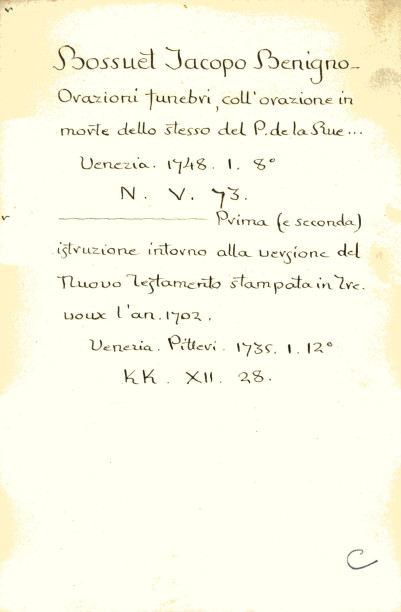 Bossuet Jacopo Benigno-
Orazioni funebri, coll'orazione in
morte dello stesso del P. de la Rue...
Venezia. 1748. 1. 8°
N. V. 73.
Prima (e seconda)
istruzione intorno alla versione del
Nuovo Testamento stampata in Tre.
voux l'an. 1702.
Venezia. Pitteri. 1735. 1. 12°
KK. XII. 28.
C